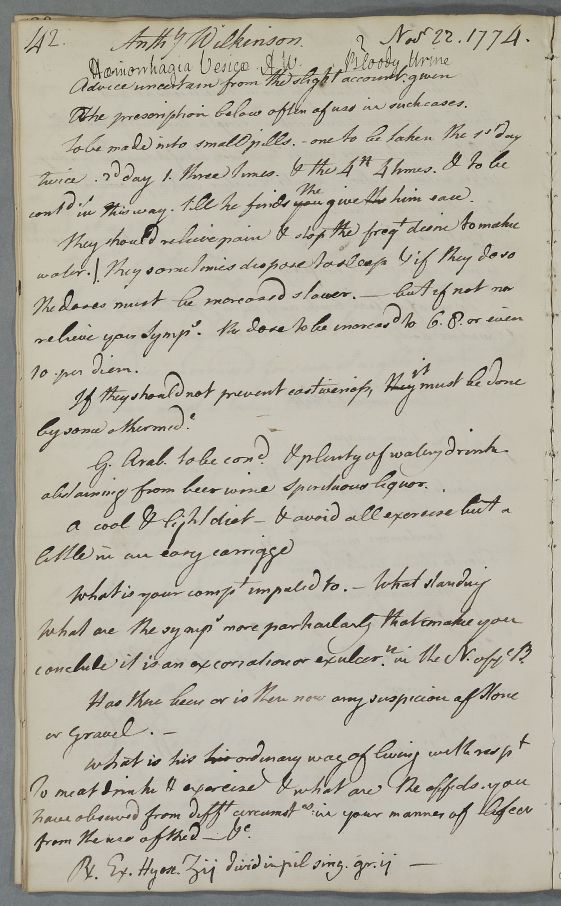 42. Anthy Wilkinson. Novr 22. 1774.
Hæmorrhagia Vesicæ A.W. ? Bloody Urine
Advice uncertain from the slight account given
The prescription below often of use in such cases.
to be made into small pills. - one to be taken the 1st day
twice 2d day 1. three times. & the 4th 4 times. & to be
contd in this way. till he finds the give him ease.
They should relieve pain & stop the freqt desire to make
water. / They sometimes dispose to sleep & if they do so
the doses must be increased slower. — but if not nor
relieve your Symps. the dose to be increasd to 6. 8. or even
10 per diem.
If they should not prevent costiveness, it must be done
by some other mede.
G. Arab. to be cond. & plenty of watery drink
abstaining from beer wine spirituous liquor.
A cool & light diet - & avoid all exercise but a
little in an easy carriage
What is your compt imputed to. - What standing
What are the symps more particularly that make you
conclude it is an excoriation or exulcern in the N. of ye B.
Has there been or is there now any suspicion of Stone
or Gravel. -
What is his ordinary way of living with respt
To meat drink & exercise & what are the effects you
have observed from difft circumstces in your manner of life or
from the use of the d — &c.
Rx. Ex. Hyosc. Ʒij divid in pil sing. gr. ij —